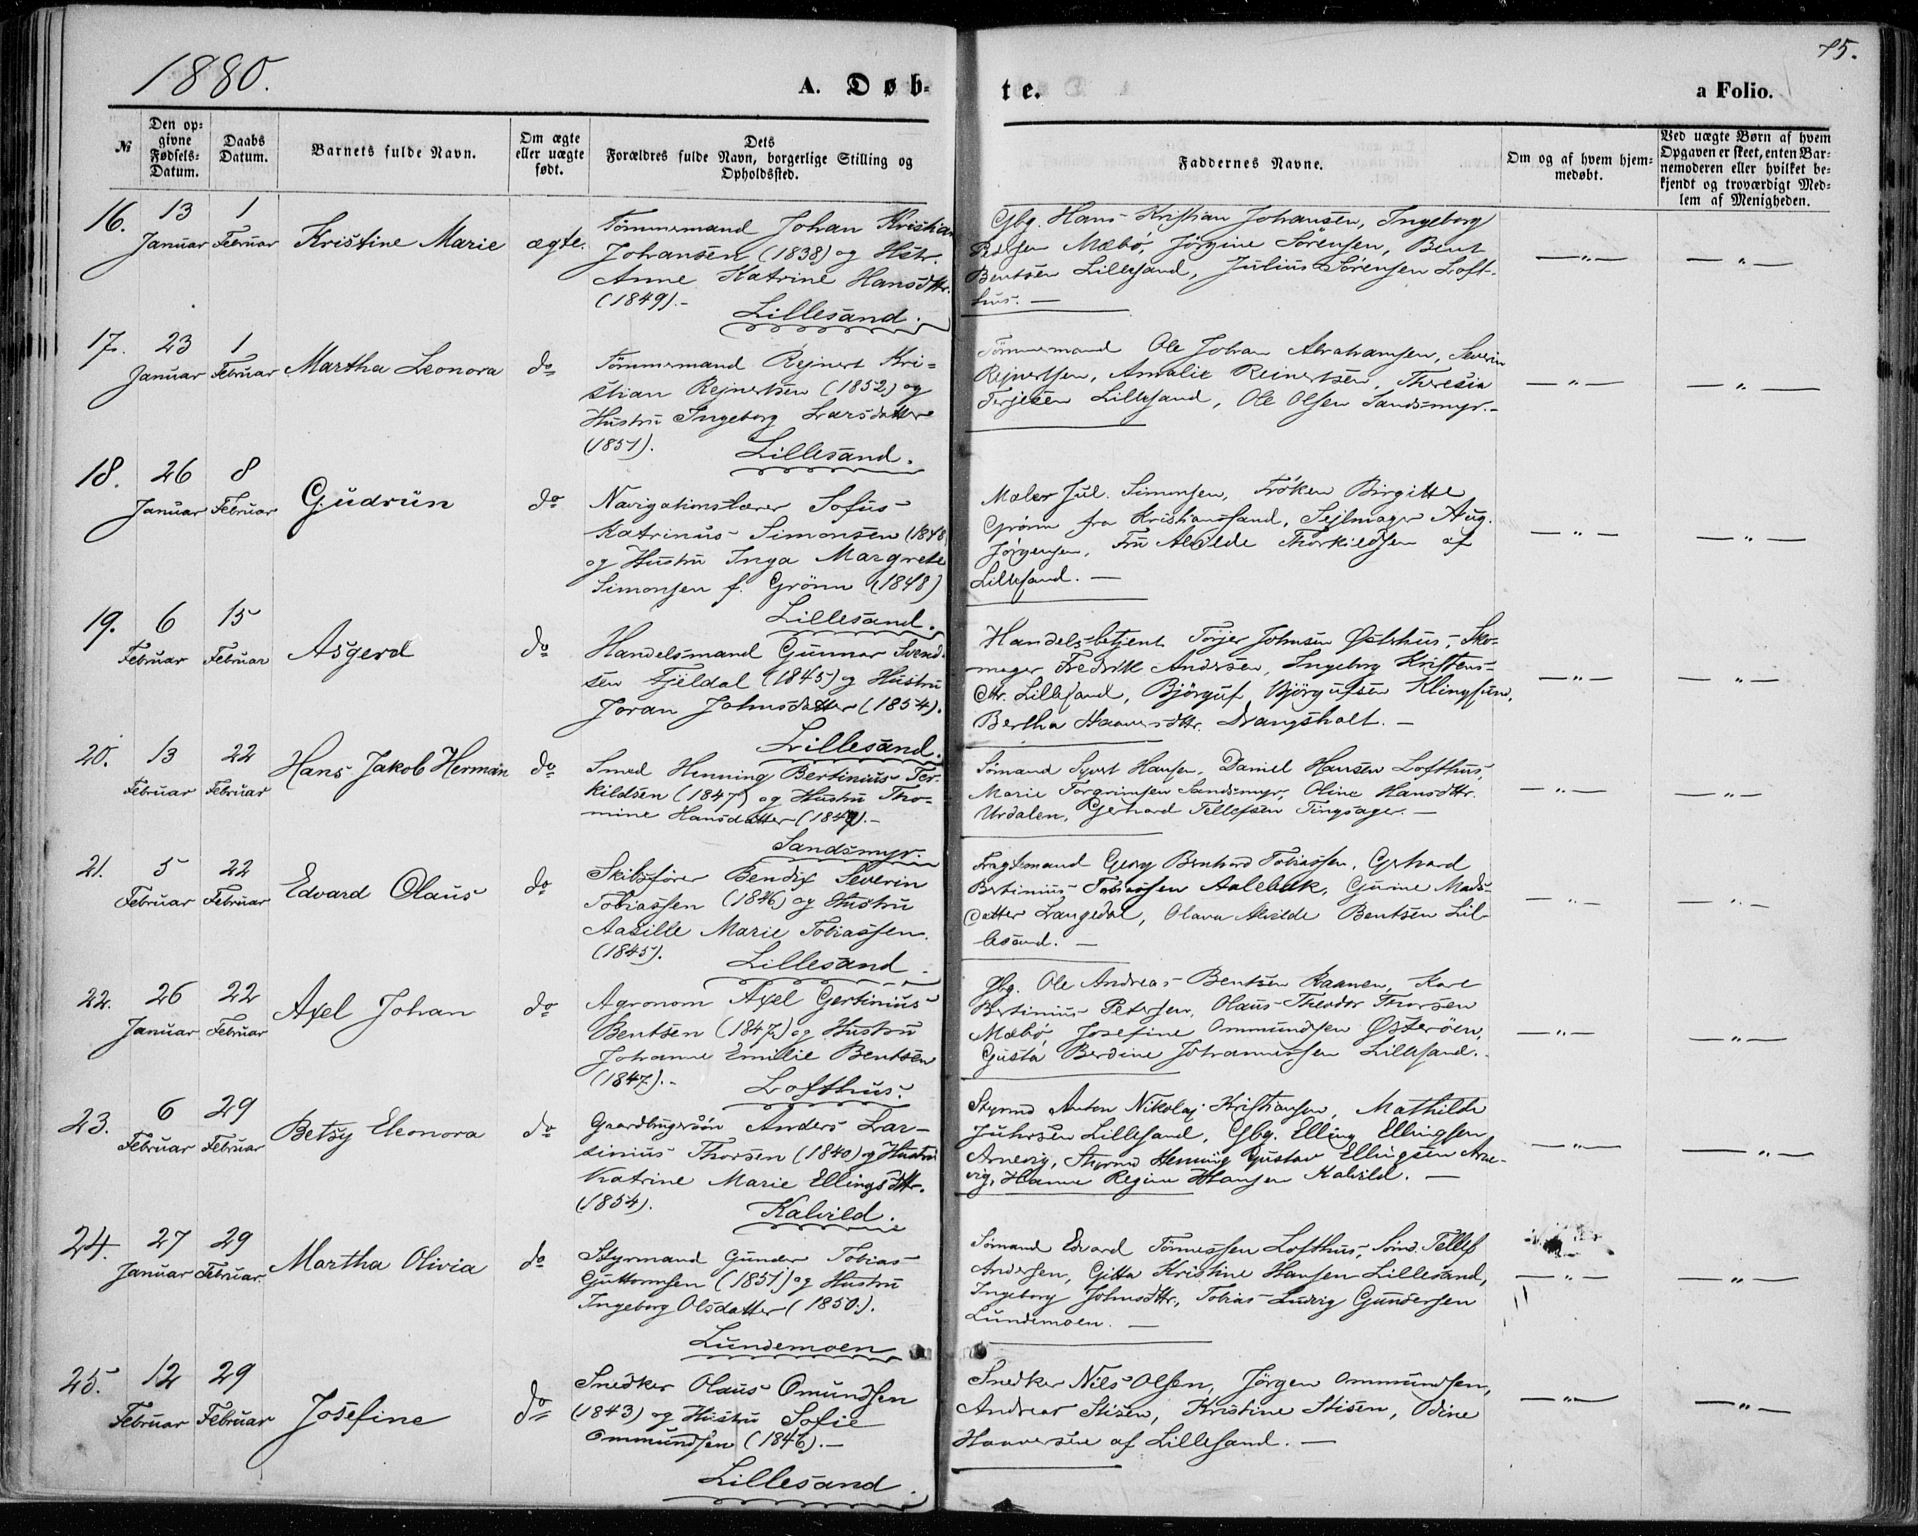 1880.
A. Døb-
te.
a Folio.
75.
№
Den op-
givne
Fødsels-
Datum.
Daabs
Datum.
Barnets fulde Navn.
Om ægte
eller uægte
født.
Dets
Forældres fulde Navn, borgerlige Stilling og
Opholdssted.
Faddernes Navne.
Om og af hvem hjem-
medøbt.
Ved uægte Børn af hvem
Opgaven er skeet, enten Bar-
nemoderen eller hvilket be-
kjendt og troværdigt Med-
lem af Menigheden.
16.
13
Januar
1
Februar
Kristine Marie
ægte.
Tømmermand Johan Kristian
Johansen (1838) og Hstr.
Anne Katrine Hansdttr.
(1849).-
Lillesand.
Gbg. Hans Kristian Johansen, Ingeborg
Pedersen Mæbø, Jørgine Sørensen, Bent
Bentsen Lillesand, Julius Sørensen Loft-
hus. —
— " —
— " —
17.
23
Januar
1
Februar
Martha Leonora
do
Tømmermand Rejnert Kri-
stian Rejnertsen (1852) og
Hustru Ingeborg Larsdatter
(1851).
Lillesand.
Tømmermand Ole Johan Abrahamsen, Severin
Rejnertsen, Amalie Reinertsen, Theresia
Terjesen Lillesand, Ole Olsen Sandsmyr.-
— " —
— " —
18.
26
Januar
8
Februar
Gudrun
do
Navigationslærer Sofus
Katrinus Simonsen (1848
og Hustru Inga Margrete
Simonsen f. Grønn (1848)
Lillesand.
Maler Jul. Simonsen, Frøken Birgitte
Grønn fra Kristianssand, Sejlmager Aug.
Jørgensen, Fru Alvilde Thorkildsen af
Lillesand. —
— " —
— " —
19.
6
Februar
15
Februar
Asgerd
do
Handelsmand Gunnar Svend-
sen Fjeldal (1845) og Hustru
Joran Johnsdatter (1854).
Lillesand.
Handelsbetjent Torjer Johnsen Østerhus, Sko-
mager Fredrik Andersen, Ingeborg Kristens-
dttr. Lillesand, Bjørguf Bjørgufsen Klingsund,
Bertha Haaversdttr. Drangsholt. —
— " —
— " —
20.
13
Februar
22
Februar
Hans Jakob Herman
do
Smed Henning Bertinius Ter-
kildsen (1847) og Hustru Tho-
mine Hansdatter (184 ).-
Sandsmyr.
Sømand Syvert Hansen, Daniel Hansen Lofthus,
Marie Torgrimsen Sandsmyr, Oline Hansdttr.
Urdalen, Gerhard Tellefsen Tingsager. —
— " —
— " —
21.
5
Februar
22
Februar
Edvard Olaus
do
Skibsfører Bendix Severin
Tobiassen (1846) og Hustru
Aasille Marie Tobiassen.
(1845).
Lillesand.
Fragtemand Georg Bernhard Tobiassen, Gerhard
Bertinius Tobiassen Aalebæk, Gunne Mads-
datter Langedal, Olava Alvilde Bentsen Lil-
lesand. —
— " —
— " —
22.
26
Januar
22
Februar
Axel Johan
do
Agronom Axel Gertinius
Bentsen (1847) og Hustru
Johanne Emilie Bentsen
(1847).-
Lofthus.
Gbg. Ole Andreas Bentsen Kaanen, Karl
Bertinius Petersen, Olaus Theodor Thorsen
Mæbø, Josefine Ommundsen Østerøen,
Gusta Berdine Johannessen Lillesand.
— " —
— " —
23.
6
Februar
29
Februar
Betsy Eleonora
do
Gaardbrugersøn Anders Lar-
sinius Thorsen (1840) og Hustru
Katrine Marie Ellingsdttr.
(1854).
Kalvild.
Styrmd Anton Nikolaj Kristiansen, Mathilde
Juhrsen Lillesand, Gbg. Elling Ellingsen
Arnevig, Styrmd Henning Gustav Ellingsen Arne-
vig, Hanne Regine Hansen Kalvild. —
— " —
— " —
24.
27
Januar
29
Februar.
Martha Olivia
do
Styrmand Gunder Tobias
Guttormsen (1851) og Hustru
Ingeborg Olsdatter (1850).
Lundemoen
Sømand Edvard Tønnessen Lofthus, Sømd. Tellef
Andersen, Gitta Kristine Hansen Lillesand,
Ingeborg Johnsdttr, Tobias Ludvig Gundersen
Lundemoen. —
— " —
— " —
25.
12
Februar
29
Februar
Josefine
do
Snedker Olaus Omundsen
(1843) og Hustru Sofie
Ommundsen (1846).—
Lillesand.
Snedker Nils Olsen, Jørgen Ommundsen,
Andreas Stisen, Kristine Stisen, Odine
Haaversen af Lillesand. —
— " —
— " —